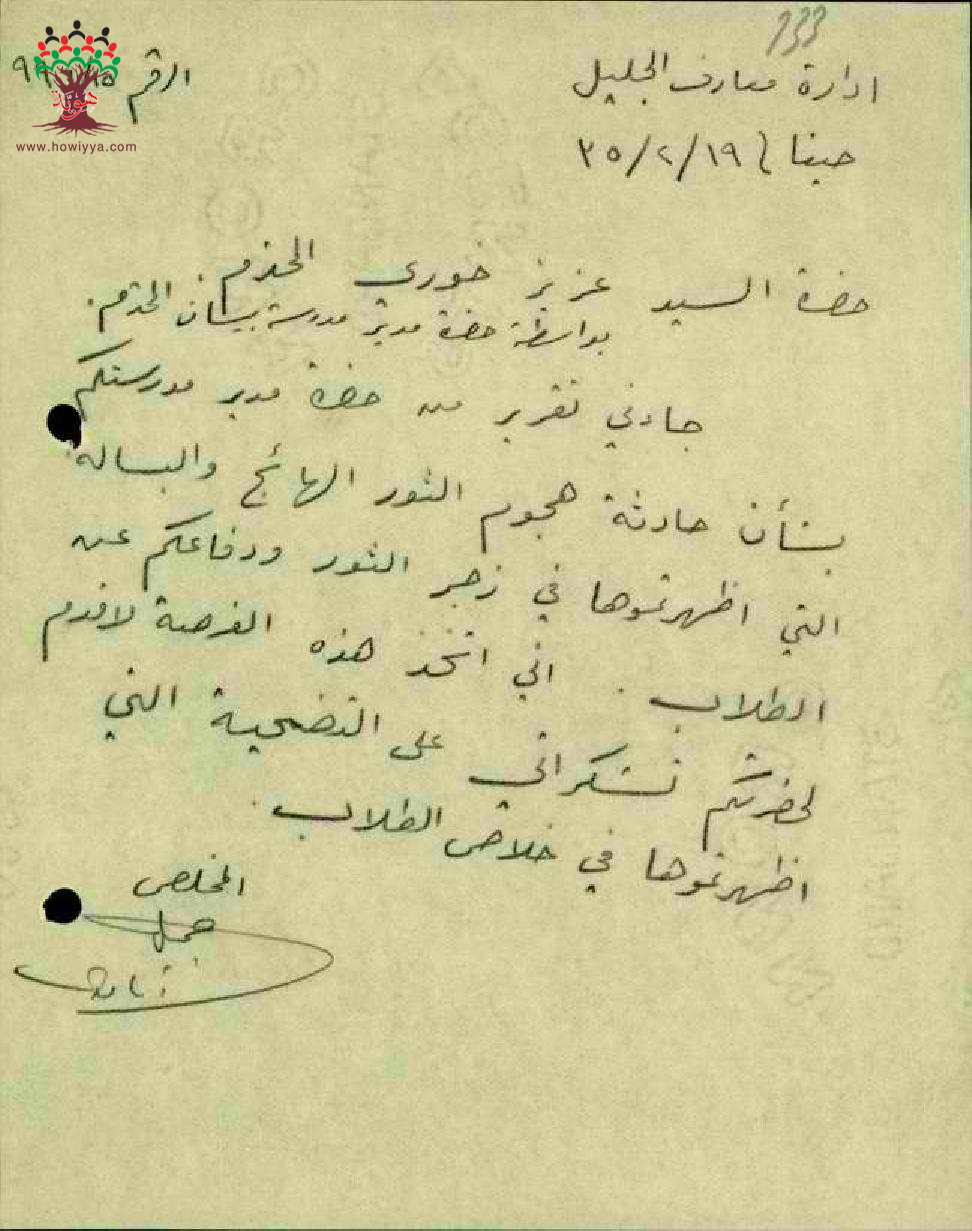 933
ادارة معارف الجليل
الرقم
هوية
www.howiyya.com
حيفا ٣٥/٢/١٩
حضرة السيد عزيز خوري المحترم
بواسطة حضرة مدير مدرسة بيسان المحترم.
جاءني تقرير من حضرة مدير مدرستكم
بشأن حادثة هجوم الثور الهائج والبسالة
التي اظهرتموها في زجر الثور ودفاعكم عن
الطلاب. اني اتخذ هذه الفرصة لاقدم
لحضرتكم تشكراتي على التضحية التي
اظهرتموها في خلاص الطلاب.
المخلص
جميل